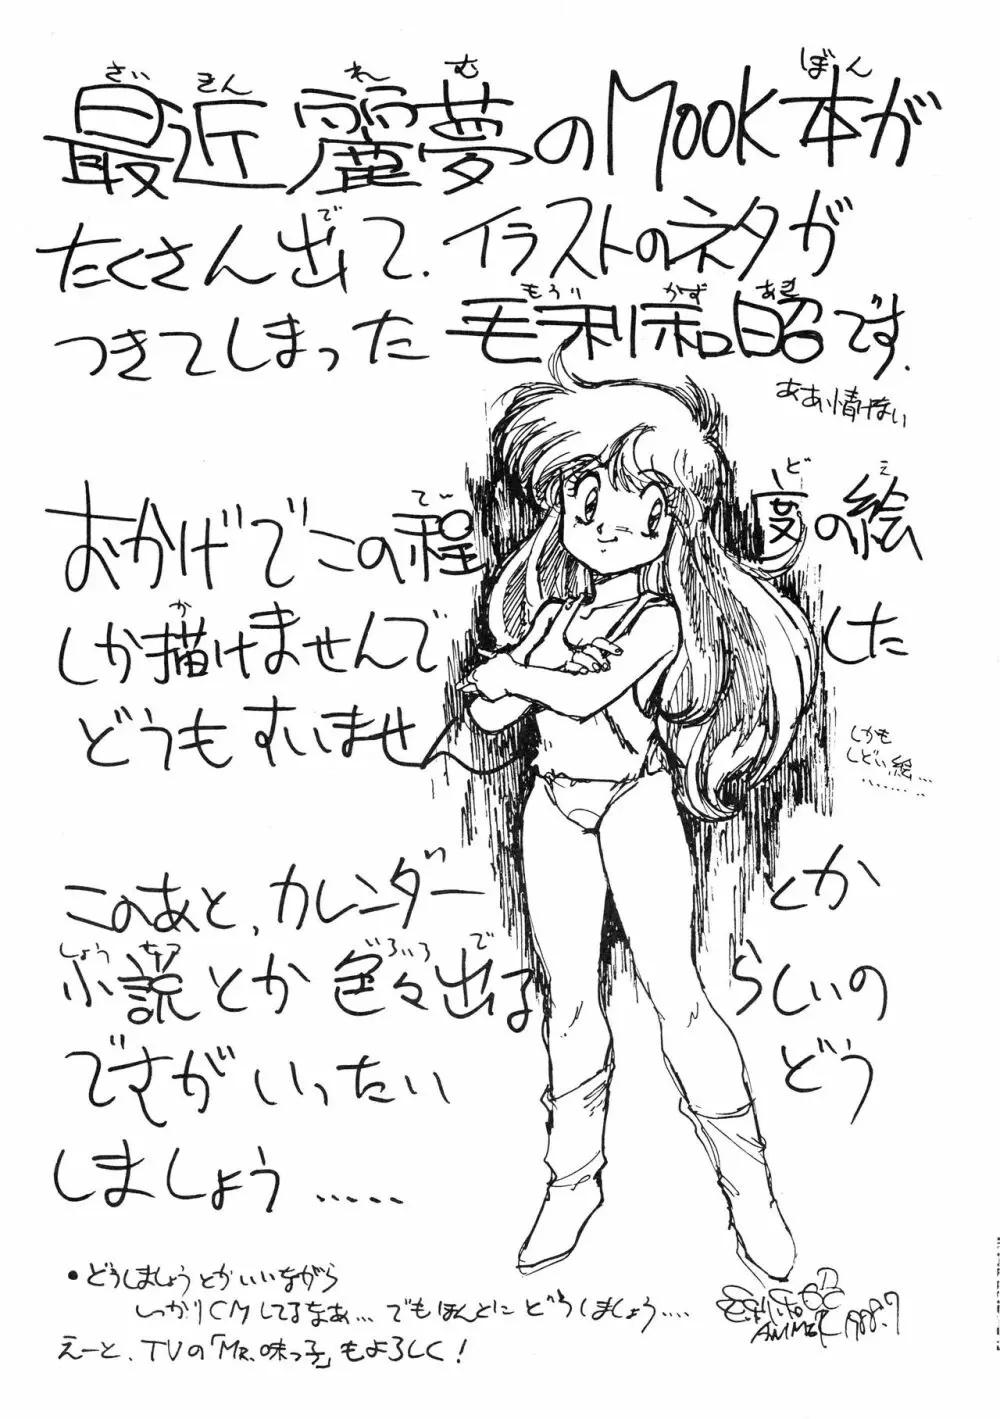 最近麗夢のMOOK本が
たくさん出て、イラストのネタが
つきてしまった 毛利和昭です.
ああ、情けない
おかげでこの程度の絵
しか描けませんでした
どうもすいませ
しかも
しどい絵…
このあと、カレンダーとか
小説とか色々出るらしいの
ですがいったいどう
しましょう……
•どうしましょうとかいいながら
しっかりCMしてるなぁ… でもほんとにどうしましょう….
えーと、TVの「MR.味っ子」もよろしく!
1988.7